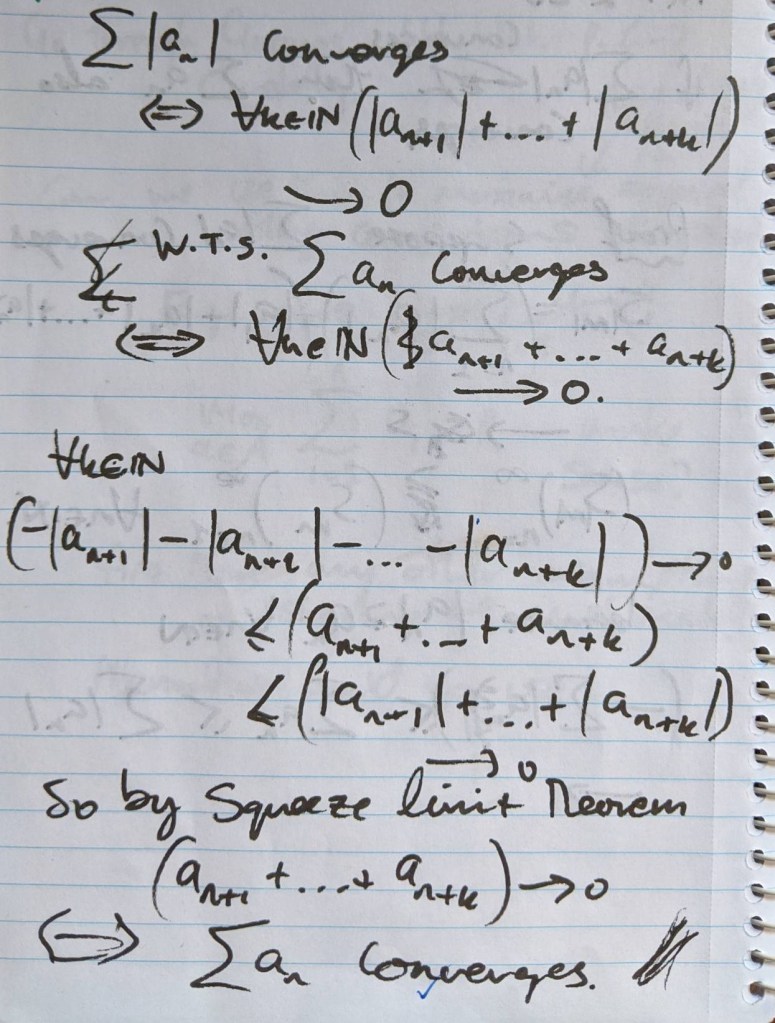 ∑|aₙ| Converges
⟺ ∀k∈ℕ (|aₙ₊₁| + ... + |aₙ₊ₖ|)
→ 0
W.T.S. ∑aₙ Converges
⟺ ∀k∈ℕ (aₙ₊₁ + ... + aₙ₊ₖ)
→ 0.
∀k∈ℕ
(-|aₙ₊₁| - |aₙ₊₂| - ... - |aₙ₊ₖ|) → 0
≤ (aₙ₊₁ + ... + aₙ₊ₖ)
≤ (|aₙ₊₁| + ... + |aₙ₊ₖ|)
→ 0
So by Squeeze limit Theorem
(aₙ₊₁ + ... + aₙ₊ₖ) → 0
⟺ ∑aₙ Converges.